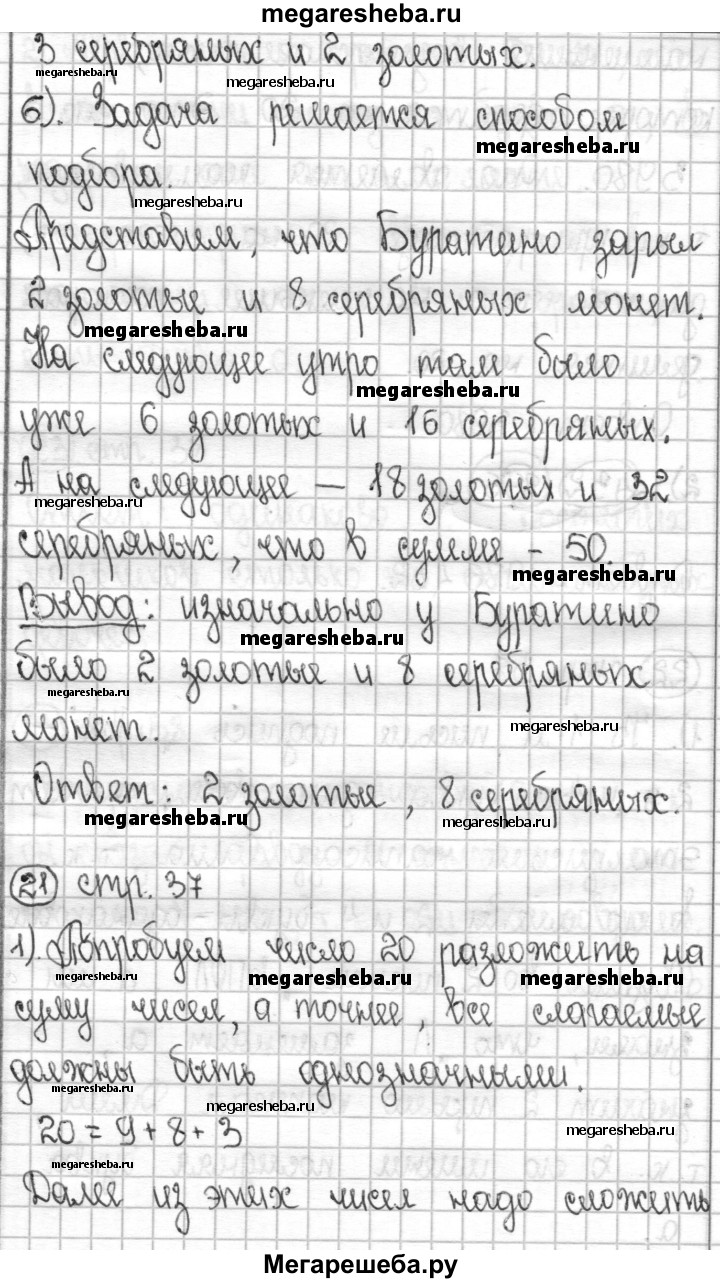 megaresheba.ru
3 серебряных и 2 золотых.
megaresheba.ru
megaresheba.ru
б). Задача решается способом
megaresheba.ru
подбора.
megaresheba.ru
Представим, что Буратино зарыл
2 золотые и 8 серебряных монет.
megaresheba.ru
На следующее утро там было
megaresheba.ru
уже 6 золотых и 16 серебряных.
А на следующее – 18 золотых и 32
megaresheba.ru
серебряных, что в сумме – 50.
megaresheba.ru
Вывод: изначально у Буратино
megaresheba.ru
было 2 золотые и 8 серебряных
megaresheba.ru
монет.
megaresheba.ru
Ответ: 2 золотые, 8 серебряных.
megaresheba.ru
megaresheba.ru
21 стр. 37
1). Попробуем число 20 разложить на
megaresheba.ru
megaresheba.ru
megaresheba.ru
сумму чисел, а точнее, все слагаемые
должны быть однозначными.
megaresheba.ru
megaresheba.ru
20 = 9 + 8 + 3
megaresheba.ru
megaresheba.ru
Далее из этих чисел надо сложить
Мегарешеба.ру